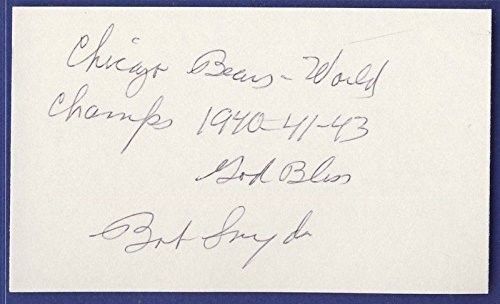 Chicago Bears - World
Champs 1940-41-43
God Bless
Bob Snyder